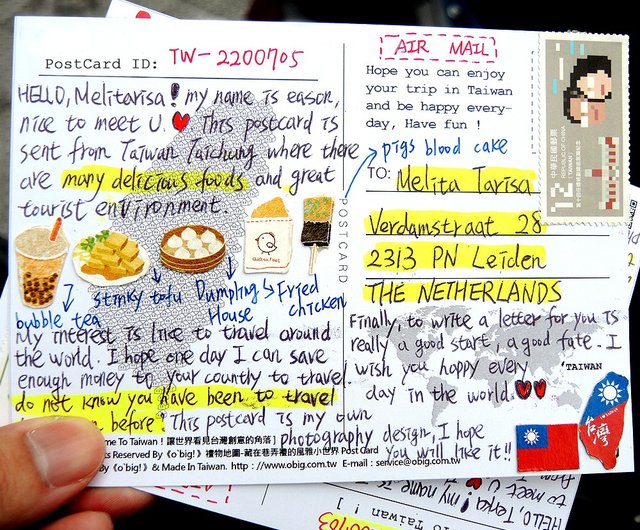 PostCard ID: TW-2200705
HELLO, Melitarisa! my name is eason,
nice to meet U. This postcard is
sent from Taiwan Taichung where there
are many delicious foods and great
tourist environment.
bubble tea
stinky tofu
Dumpling
House
Fried
chicken
pigs blood cake
My interest is like to travel around
the world. I hope one day I can save
enough money to your country to travel.
do not know you have been to travel
before? This postcard is my own
photography design, I hope
you will like it!!
AIR MAIL
Hope you can enjoy
your trip in Taiwan
and be happy every-
day, Have fun !
POSTCARD
TO: Melita Tarisa
Verdamstraat 28
2313 PN Leiden
THE NETHERLANDS
Finally, to write a letter for you is
really a good start, a good fate. I
wish you happy every
day in the world.
TAIWAN
台灣
中華民國郵票
REPUBLIC OF CHINA
(TAIWAN)
12
me To Taiwan ! 讓世界看見台灣創意的角落 ]
ts Reserved By 《o'big!》禮物地圖-藏在巷弄裡的風雅小世界 Post Card
By《o'big!》& Made In Taiwan. http://www.obig.com.tw E-mail : service@obig.com.tw
HELLO, Terra! my name is
to meet U.
to Taiwan !